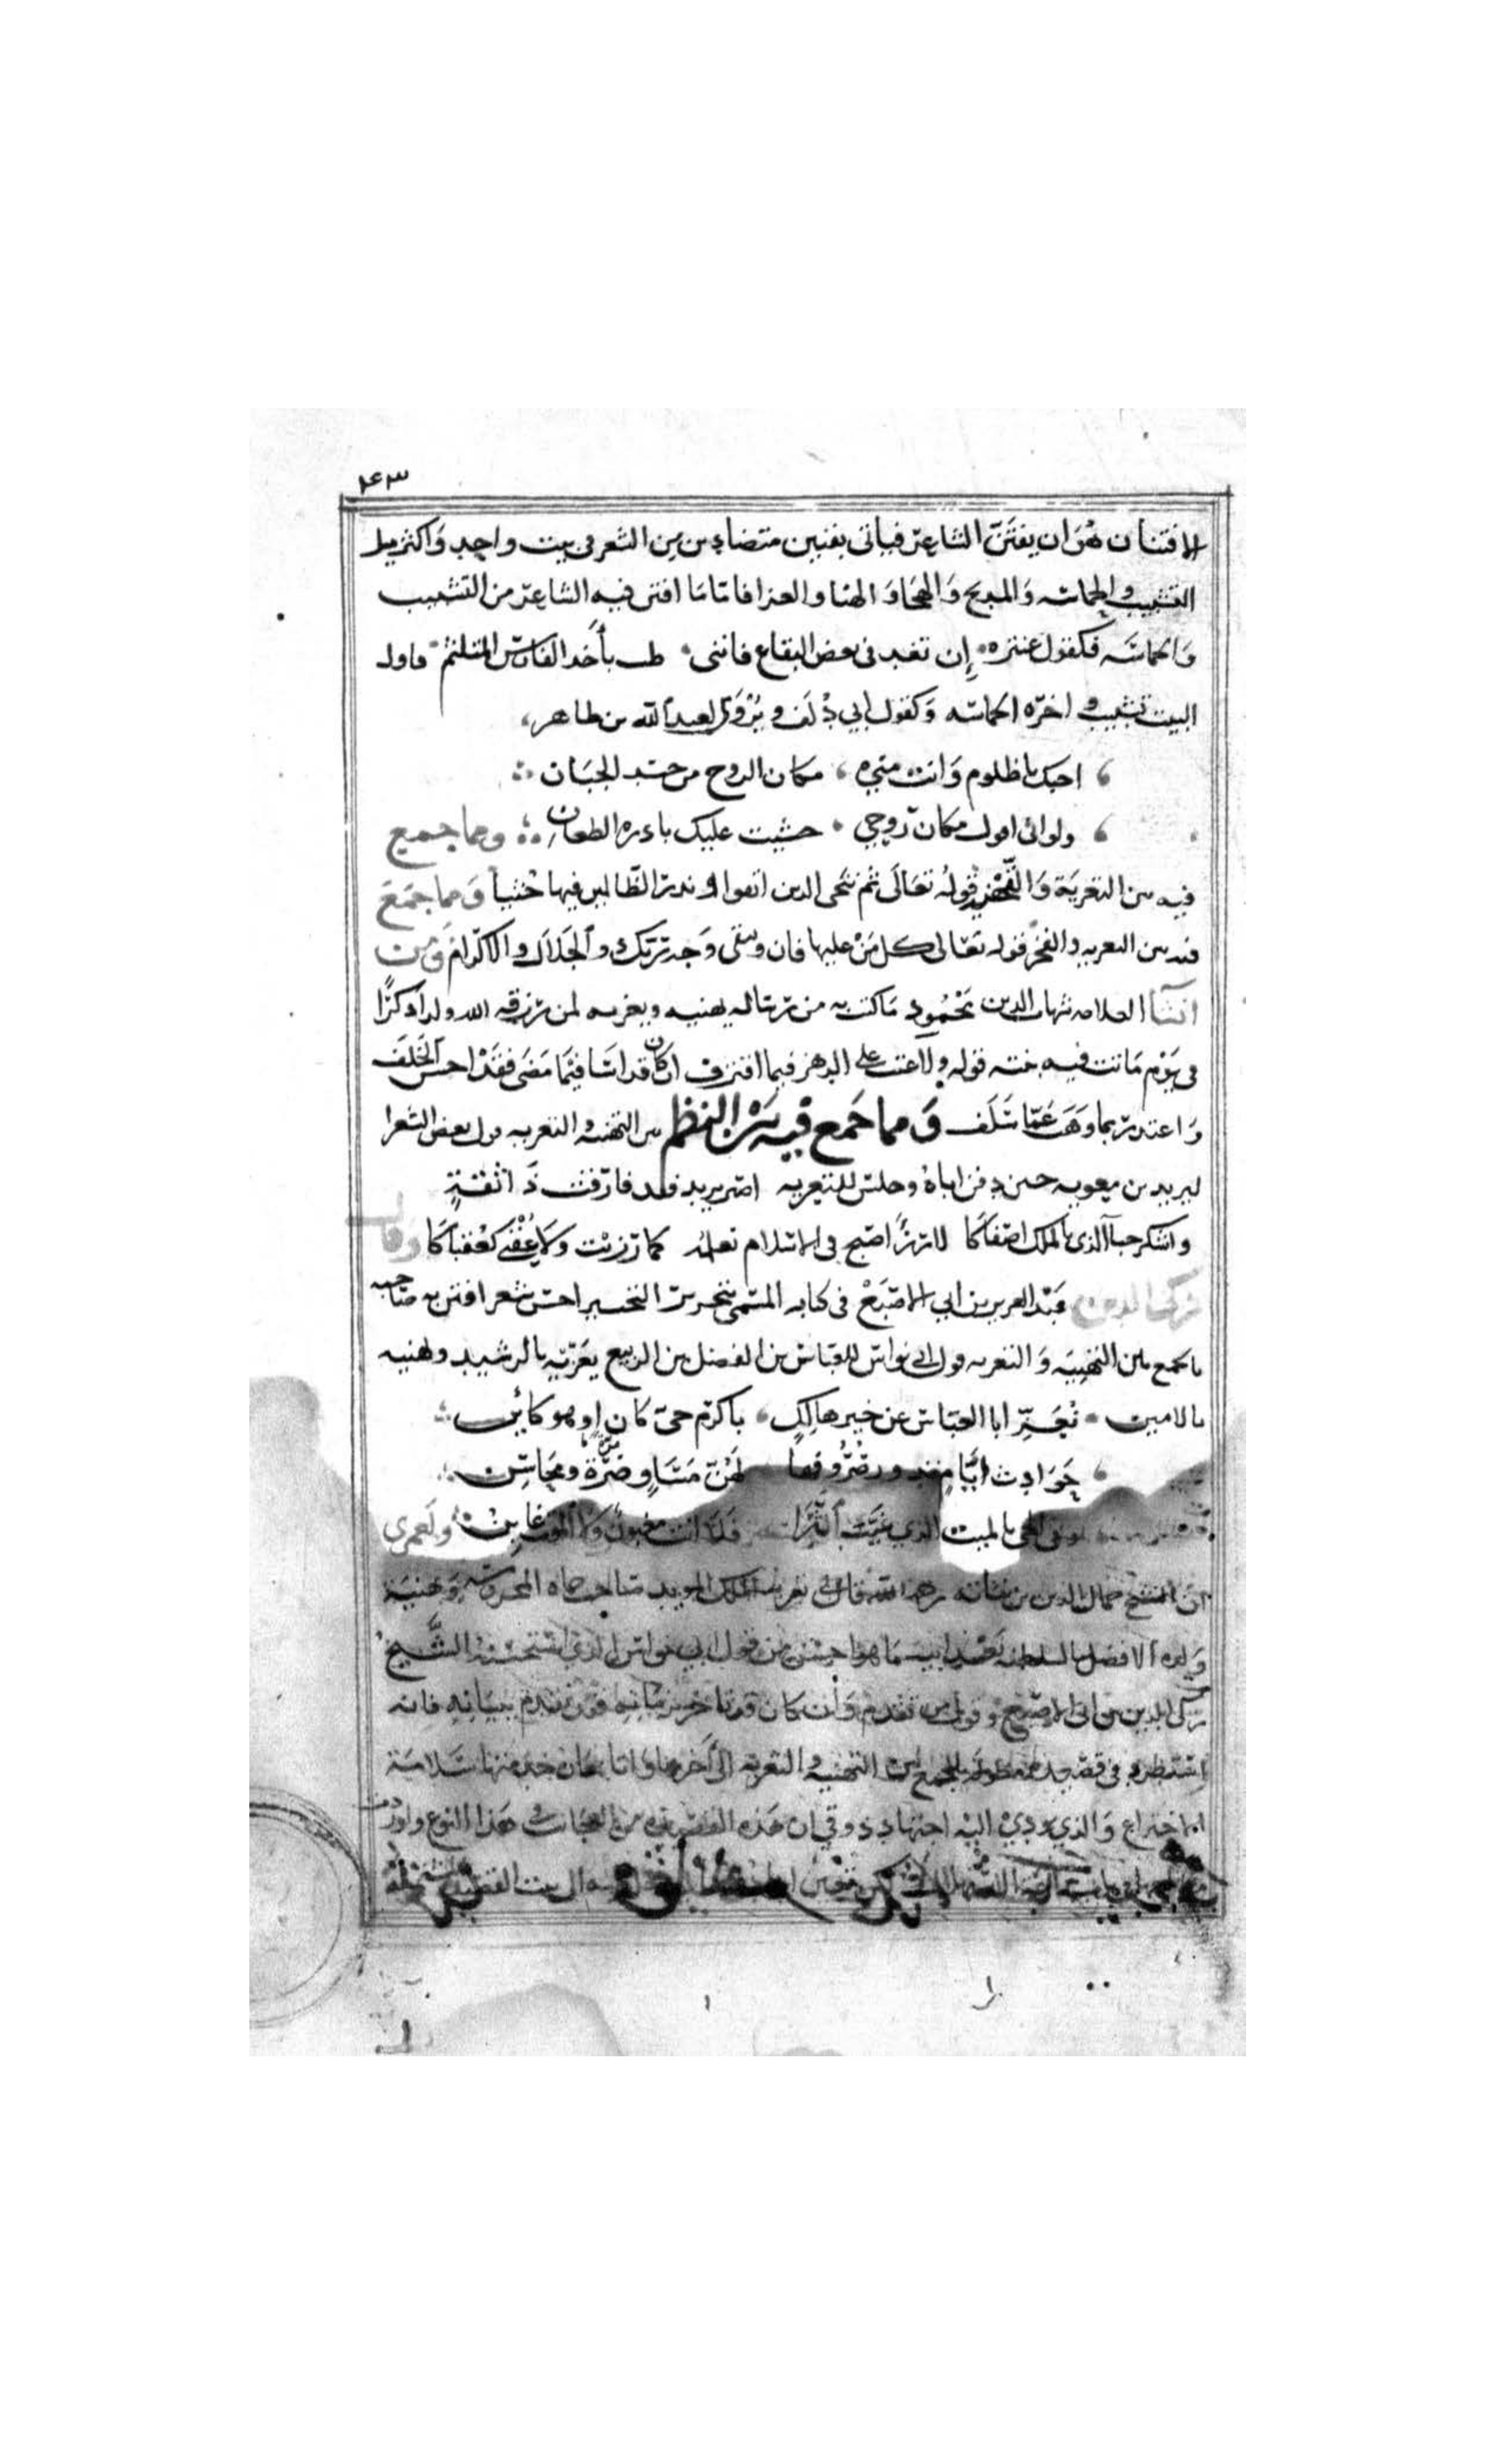 ١٤٣
الافتنان هو ان يفتن الشاعر فياتي بفنين متضادين من الشعر في بيت واحد واكثر مثل
التشبيب والحماسه والمديح والهجا والهنا والعزا فاما ما افتن فيه الشاعر من التشبيب
والحماسه فكقول عنتره ان تغد في بعض البقاع فانني طب بأخذ الفارس المتلئم فاول
البيت تشبيب واخره الحماسه وكقول ابي دلف ويروى لعبد الله بن طاهر
احبك يا ظلوم وانت مني مكان الروح من جسد الجبان
ولو اني اقول مكان روحي خشيت عليك بادره الطعان ومما جمع
فيه بين التعزية والفخر قوله تعالى ثم ننجي الذين اتقوا ونذر الظالمين فيها جثيا ومما جمع
فيه بين التعزيه والفخر قوله تعالى كل من عليها فان ويبقى وجه ربك ذو الجلال والاكرام ومن
انشا العلامه شهاب الدين محمود ما كتب به من رسالة يهنيه ويعزيه لمن رزقه الله ولدا ذكرا
في يوم ماتت فيه بنته قوله ولا عتب على الدهر فيما اقترف ان كان قد اسا فيما مضى فقد احسن الخلف
واعتذر بما وهب عما سلف ومما جمع فيه من النظم بين التهنيه والتعزيه قول بعض الشعرا
ليزيد بن معويه حين دفن اباه وجلس للتعزيه اصبر يزيد فقد فارقت ذا ثقة
واشكر حبا الذي بالملك اصفاكا لا رزأ اصبح في الاسلام نعلمه كما رزئت ولا عقبى كعقباكا وقال
زكي الدين عبد العزيز بن ابي الاصبع في كتابه المسمى بتحرير التحبير احسن شعر افتن به صاحبه
ما جمع بين التهنيه والتعزيه قول ابي نواس للعباس بن الفضل بن الربيع يعزيه بالرشيد ويهنيه
بالامين تعز ابا العباس عن خير هالك باكرم حي كان او هو كائن
حوادث ايام تدور صروفها لهن مساو مرة ومحاسن
وفى الحي بالميت الذي غيب الثرا فلا انت مغبون ولا الموت غابن ولعمري
ان الشيخ جمال الدين بن نباته رحمه الله قال في تعزية الملك المويد صاحب حماه المحروسه وتهنية
ولده الافضل بالسلطنه بعد ابيه ما هو احسن من قول ابي نواس الذي استحسنه الشيخ
زكي الدين بن ابي الاصبع وقول من تقدم وان كان قد تاخر زمانه فقد تقدم ببيانه فانه
استطرد في قصيده مطوله بالجمع بين التهنيه والتعزيه الى اخرها واتا بمعان خدمتها سلامة
الاختراع والذي يودي اليه اجتهاد ذوقي ان هذه القصيده من العجائب في هذا النوع واورد